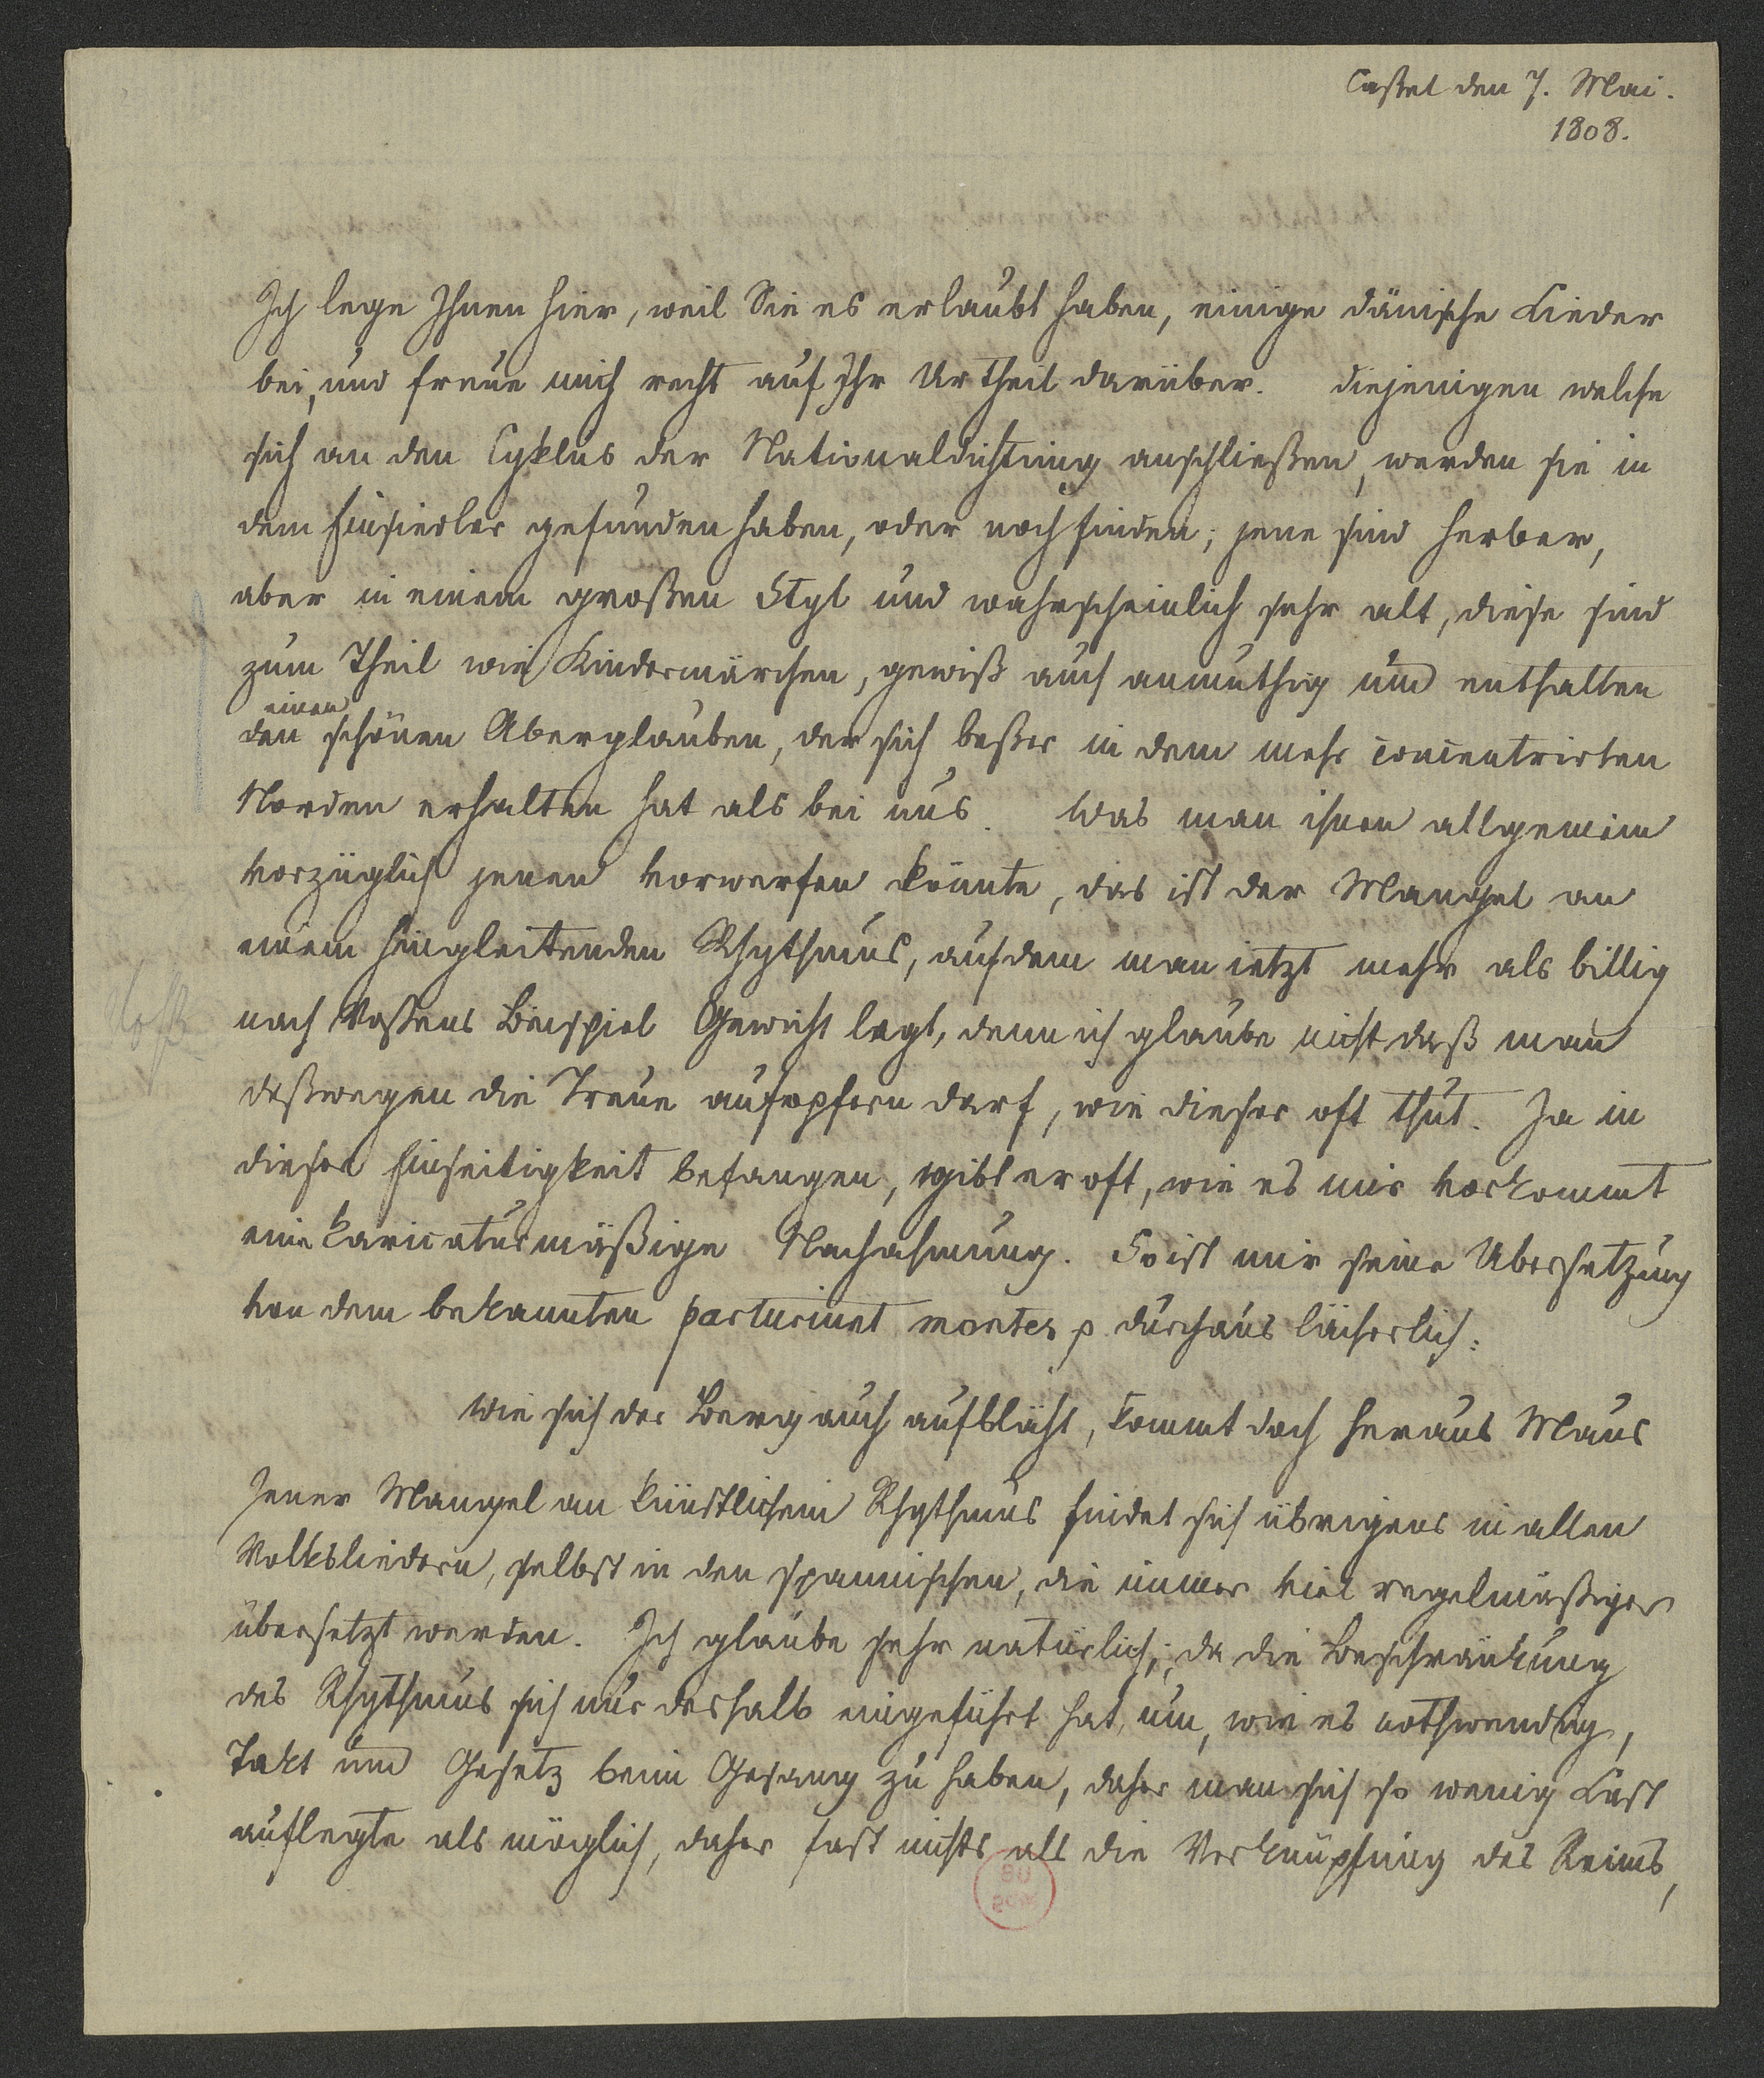 Cassel den 7. Mai.
1808.
Ich lege Ihnen hier, weil Sie es erlaubt haben, einige dänische Lieder
bei, und freue mich recht auf Ihr Urtheil darüber. diejenigen welche
sich an den Cyklus der Nationaldichtung anschließen, werden sie in
dem Einsiedler gefunden haben, oder noch finden; jene sind herber,
aber in einem großen Styl und wahrscheinlich sehr alt, diese sind
zum Theil wie Kindermärchen, gewiß auch anmuthig und enthalten
einen
den schönen Aberglauben, der sich beßer in dem mehr concentrirten
Norden erhalten hat als bei uns. Was man ihnen allgemein
vorzüglich jenen vorwerfen könnte, das ist der Mangel an
einem hingleitenden Rhythmus, auf dem man ietzt mehr als billig
nach Voßens Beispiel Gewicht legt, denn ich glaube nicht daß man
deßwegen die Treue aufopfern darf, wie dieser oft thut. Ja in
dieser Einseitigkeit befangen, gibt er oft, wie es mir vorkommt
eine karicaturmäßige Nachahmung. So ist mir seine Übersetzung
von dem bekannten parturiunt montes p durchaus lächerlich:
wie sich der Berg auch aufbläht, kommt doch heraus Maus
Jener Mangel an künstlichem Rhythmus findet sich übrigens in allen
Volksliedern, selbst in den spannischen, die immer viel regelmäßiger
übersetzt werden. Ich glaube sehr natürlich; da die Beschränkung
des Rhythmus sich nur deshalb eingeführt hat, um, wie es nothwendig,
Takt und Gesetz beim Gesang zu haben, daher man sich so wenig Last
auflegte als möglich, daher fast nichts als die Verknüpfung des Reims,